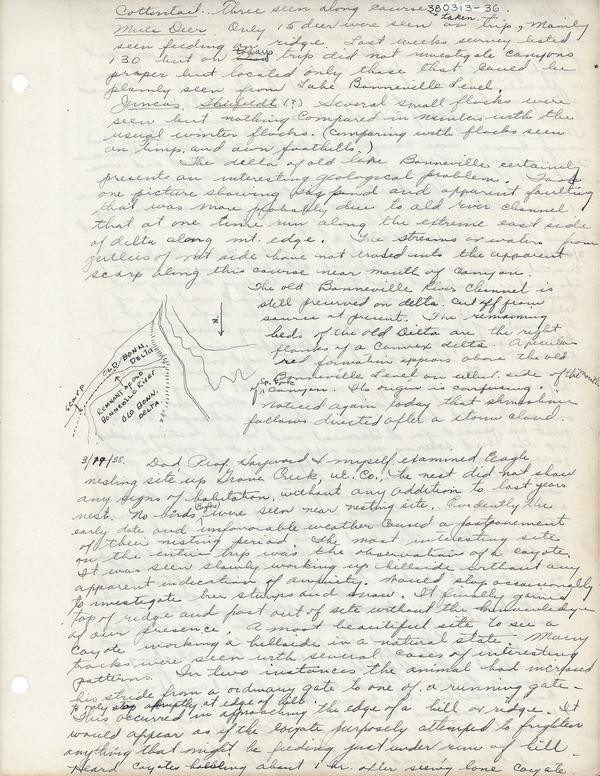 Cottontail. Three seen along course. 380313-36.
Mule Deer Only 15 deer were seen on taken trip, mainly
seen feeding on ridge. Last weeks survey listed
130 but on trip did not investigate canyons
proper but located only those that could be
plainly seen from Lake Bonneville Level.
Juncos, Shufeldt (?) Several small flocks were
seen but nothing compared in numbers with the
usual winter flocks. (Comparing with flocks seen
on Timp. and own foothills.)
The delta of old lake Bonneville certainly
presents an interesting geological problem. Took
one picture showing sag pond and apparent faulting
that was more probably due to old river channel
that at one time run along the extreme east side
of delta along mt. edge. The streams or waters from
gullies of mt side have not eroded into the apparent
scarp along this course near mouth of canyon.
The old Bonneville River Channel is
still preserved on delta. Cut off from
source at present. The remaining
beds of the old Delta are the right
flanks of a convex delta. A peculiar
red formation appears above the old
Bonneville Level on either side of the mouth
of Sp. Fork Canyon. Its origin is confusing.
Noticed again today that sunshine
follows directed after a storm cloud.
N
SCARP
OLD. BONN. DELTA
REMNANT OF OLD BONNEVILLE RIVER
OLD. BONN. DELTA.
3/19/38. Dad, Prof. Hayward & myself examined Eagle
nesting site up Grove Creek, Ut. Co., the nest did not show
any signs of habitation, without any addition to last years
nest. No birds (Eagles) were seen near nesting site. Evidently the
early date and unfavorable weather caused a postponement
of their nesting period. The most interesting site
on the entire trip was the observation of a coyote.
It was seen slowly working up hillside without any
apparent indication of anxiety. Would stop occasionally
to investigate tree stumps and snow. It finally gained
top of ridge and past out of site without the knowledge
of our presence. A most beautiful site to see a
coyote working a hillside in a natural state. Many
tracks were seen with several cases of interesting
patterns. In two instances the animal had increased
his stride from a ordinary gate to one of a running gate -
to only stop abruptly at edge of hill.
This occurred in approaching the edge of a hill or ridge. It
would appear as if the coyote purposely attempted to frighten
anything that might be feeding just under rim of hill -
Heard coyotes howling about 1 hr. after seeing lone coyote.